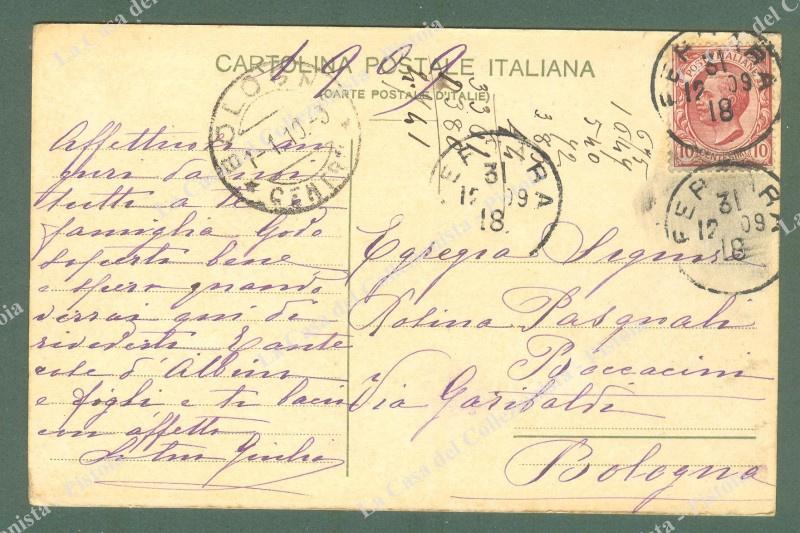 CARTOLINA POSTALE ITALIANA
(CARTE POSTALE D'ITALIE)
1909
BOLOGNA
1-1.10-5
* CENTRO *
FERRARA
31
12 09
18
FERRARA
31
12 09
18
FERRARA
31
12 09
18
POSTE ITALIANE
10 CENTESIMI 10
Affettuosi au
guri da noi
tutti a te
famiglia Godo
saperti bene
e spero quando
verrai qui di
rivederti Tante
cose d'Albina
e figli e ti bacio
con affetto
Giulia
Egregia Signora
Pasquali
Boccacini
Via Garibaldi
Bologna
La Casa del Collezionista - Pistoia